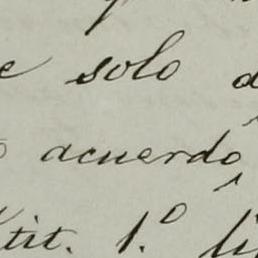 solo
acuerdo
tit. 1.º